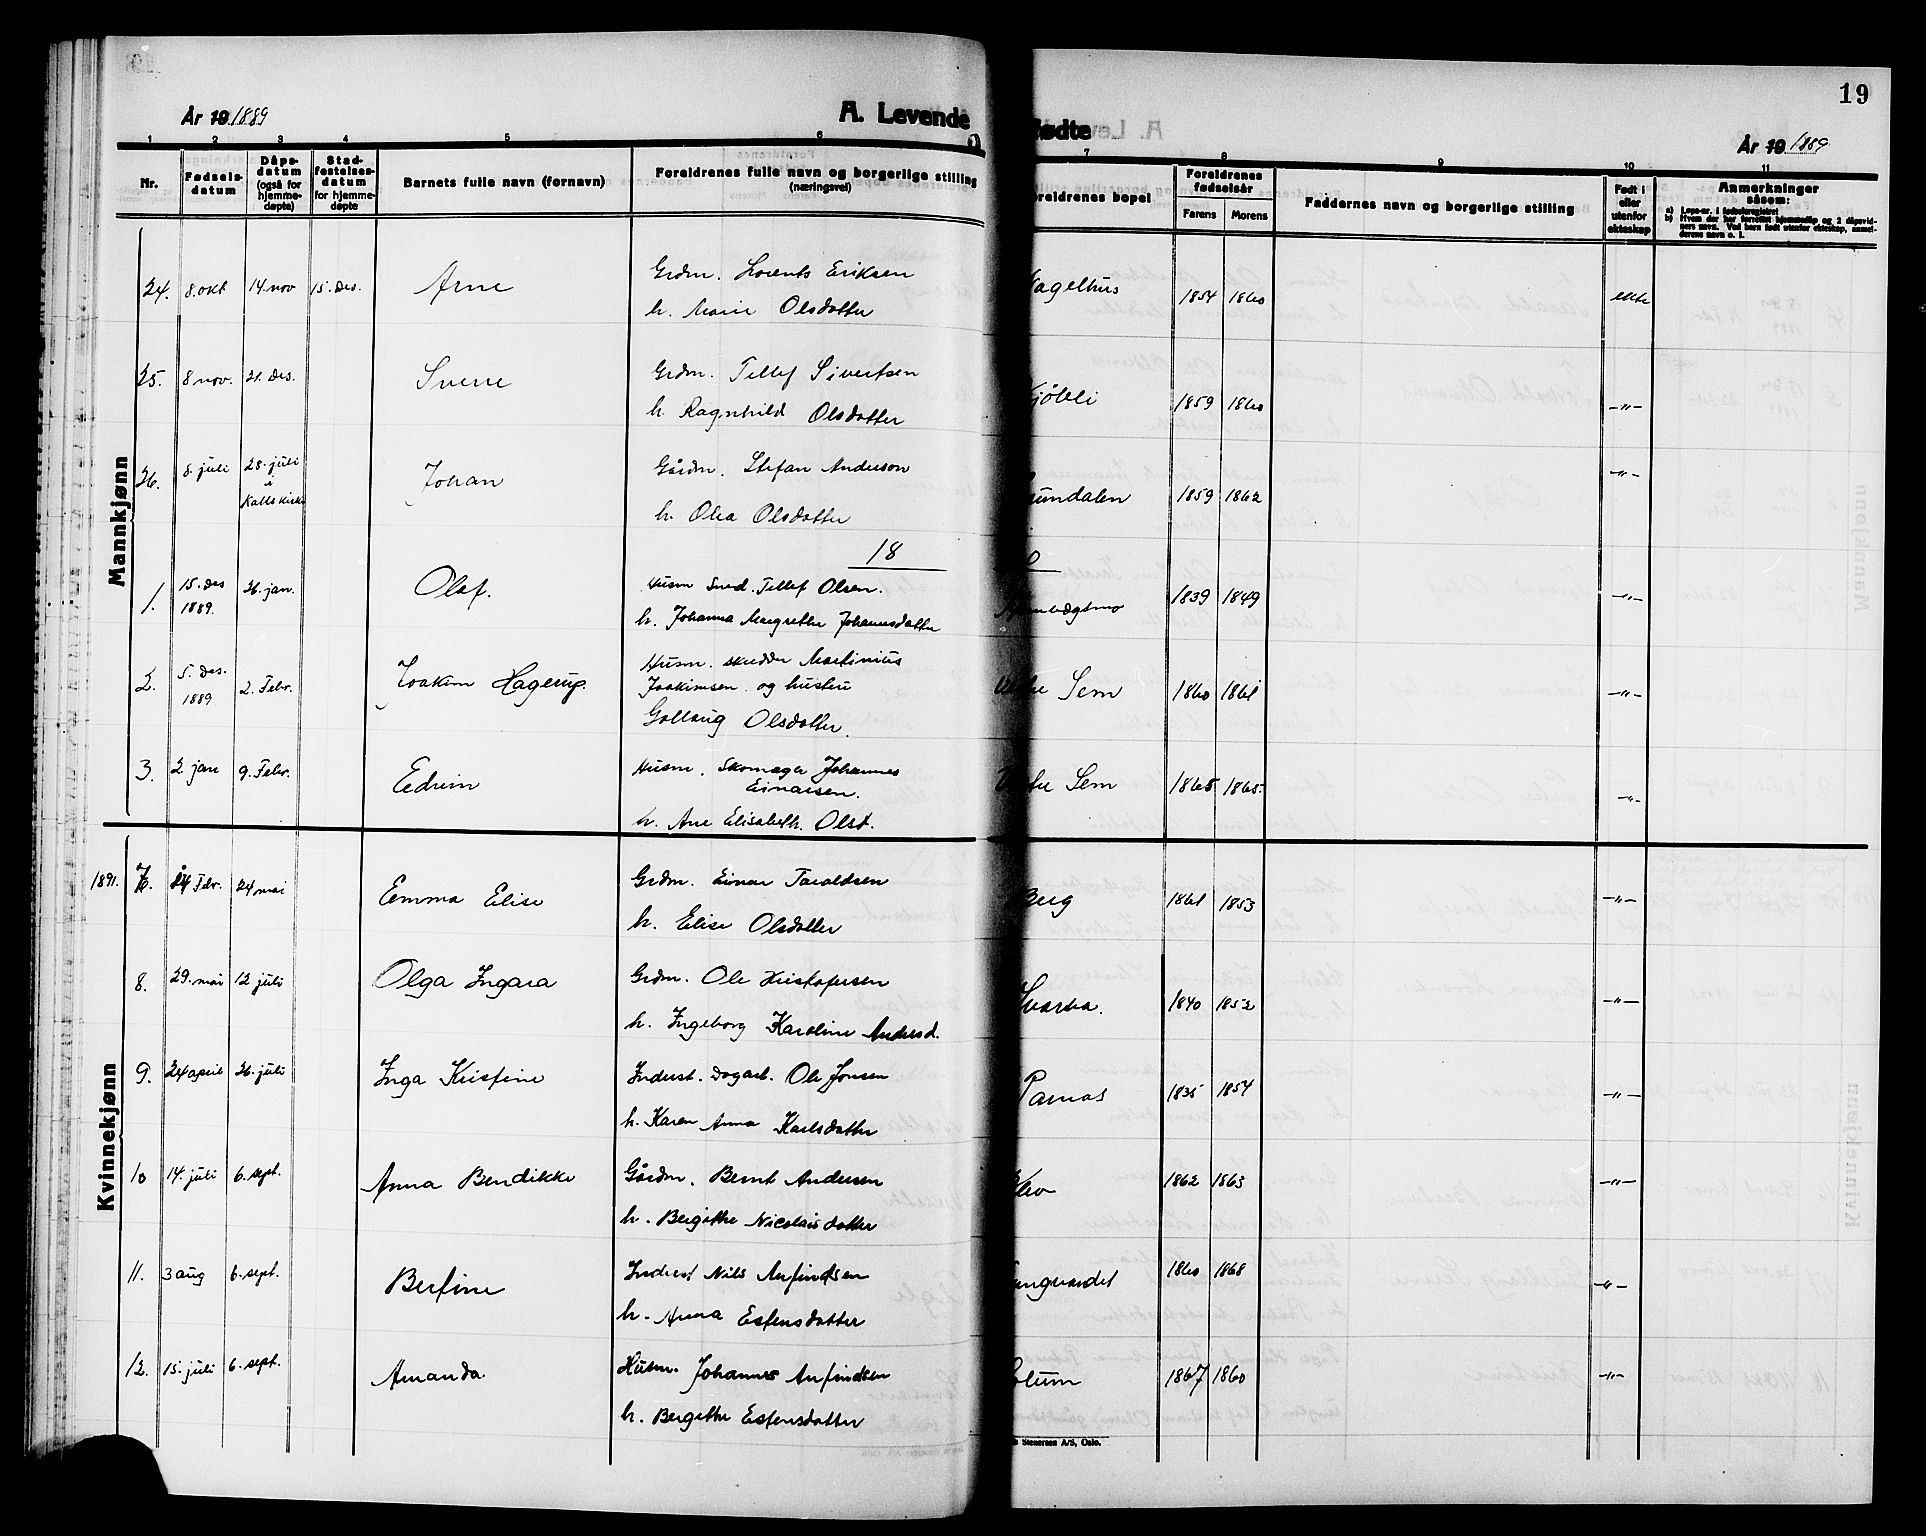 19
År 19 1889
A. Levende
Fødte
År 19 1889
1 2 3 4 5 6 7 8 9 10 11
Nr.
Fødselsdatum
Dåpsdatum (også for hjemmedøpte)
Stadfestelsesdatum for hjemmedøpte
Barnets fulle navn (fornavn)
Foreldrenes fulle navn og borgerlige stilling
(næringsvei)
Foreldrenes bopel
Foreldrenes fødselsår
Farens Morens
Faddernes navn og borgerlige stilling
Født i eller utenfor ekteskap
Anmerkninger såsom:
Mannkjønn
24. 8. okt 14. nov 15. des. Arne Grdm. Lorents Eriksen Hagelhus 1854 1860 ekte
h. Marie Olsdatter
25. 8 nov. 21. des. Sverre Grdm. Tellef Sivertsen 1859 1860 -"-
h Ragnhild Olsdatter
26. 8. juli 28. juli i Kalls kirke Johan Gårdm. Stefan Anderson 1859 1862 -"-
h. Olea Olsdatter
18
1. 15. des 1889. 26. jan. Olaf. Husm Smed. Tellef Olsen. 1839 1849 -"-
h. Johanna Margrethe Johannesdatter
2. 5. des. 1889 2. Febr. Joakim Hagerup. Husm. skredder Martinius Sem 1860 1861 -"-
Joakimsen og hustru
Gollaug Olsdatter.
3. 2. jan 9. Febr. Edvin Husm. Skomager Johannes Sem 1865 1865. -"-
Einarsen.
h. Ane Elisabeth. Olsd.
Kvinnekjønn
1891. 7. 24 Febr. 24 mai Emma Elise Grdm. Einar Taraldsen Berg 1861 1853 -"-
h. Elise Olsdatter
8. 29. mai 12 juli Olga Ingara Grdm. Ole Kristofersen Svarva. 1840 1852 -"-
h. Ingeborg Karoline Andersd.
9. 24 april 26. juli Inga Kristine Inderst. Dagarb. Ole Jonsen Parnas 1835 1854 -"-
h. Karen Anna Karlsdatter
10 14. juli 6. sept. Anna Bendikke Gårdm. Bernt Andersen 1862 1863 -"-
h. Bergitte Nicolaisdatter
11. 3 aug 6. sept. Berfine Inderst Nils Anfindsen 1860 1868 -"-
h. Anna Estensdatter
12. 15. juli 6. sept. Amanda Husm. Johannes Anfindsen Solum 1867 1860 -"-
h. Bergitte Estensdatter
Stenersen A/S, Oslo.